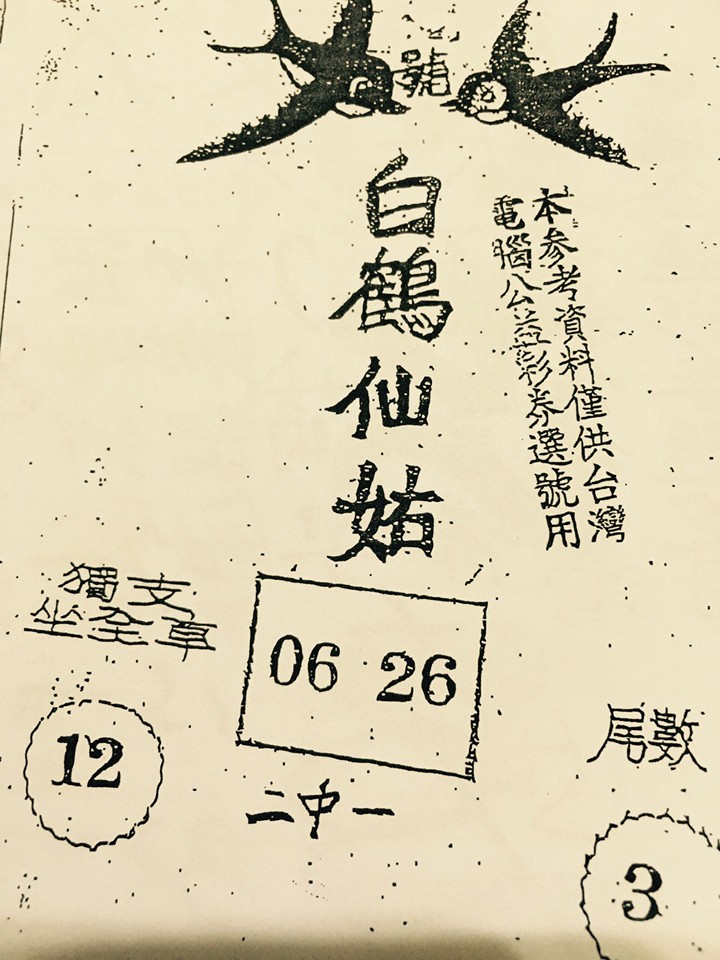 號
白鶴仙姑
本参考資料僅供台灣
電腦公益彩券選號用
獨支
坐全車
06 26
12
二中一
尾數
3